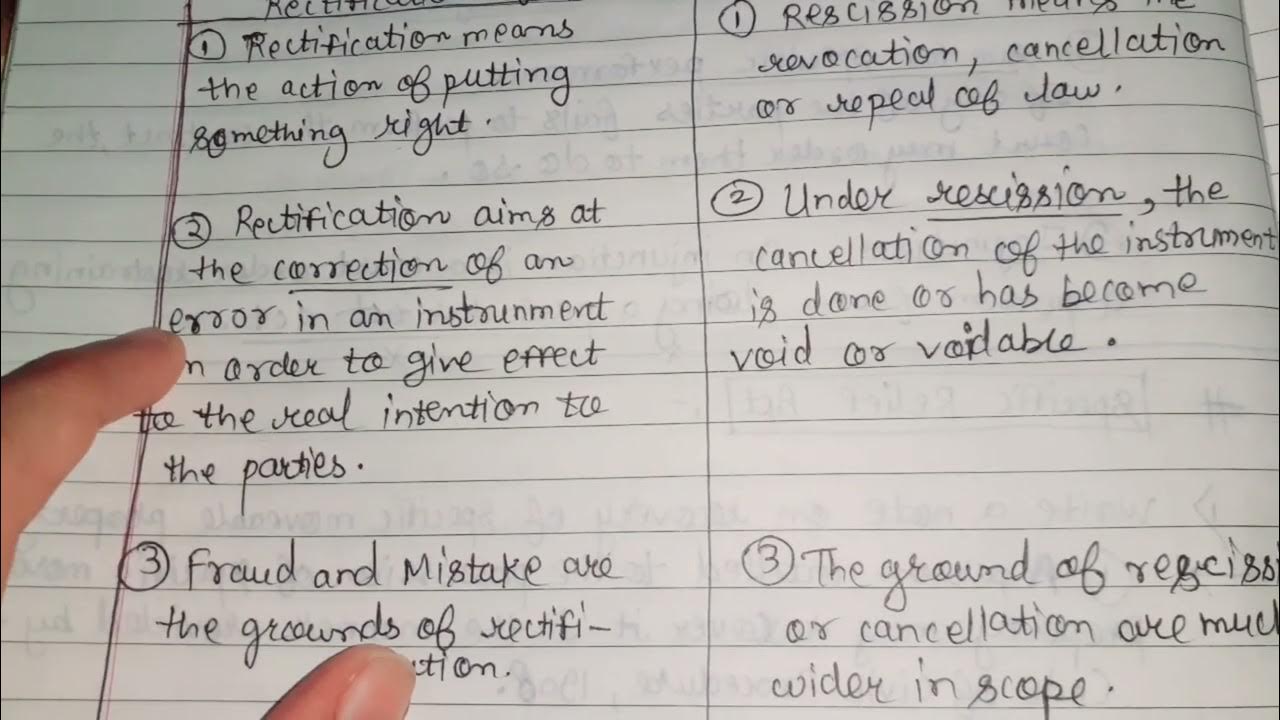 ① Rectification means
the action of putting
something right.
② Rectification aims at
the correction of an
error in an instrunment
n order to give effect
to the real intention to
the parties.
③ Fraud and Mistake are
the grounds of rectifi-
ction.
① Rescission means the
revocation, cancellation
or repeal of law.
② Under rescission, the
cancellation of the instrument
is done or has become
void or voidable.
③ The ground of resciss
or cancellation are muc
wider in scope.
# [Specific Relief Act] :-